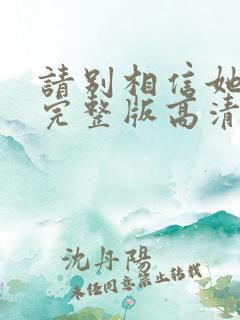 請别相信她
完整版高清
沈丹陽
未经同意禁止转载